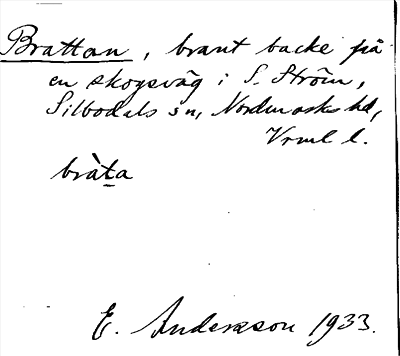 Brattan, brant backe på
en skogsväg i S. Ström,
Silbodals sn, Nordmarks hd,
Vrml l.
bràta
E. Andersson 1933.